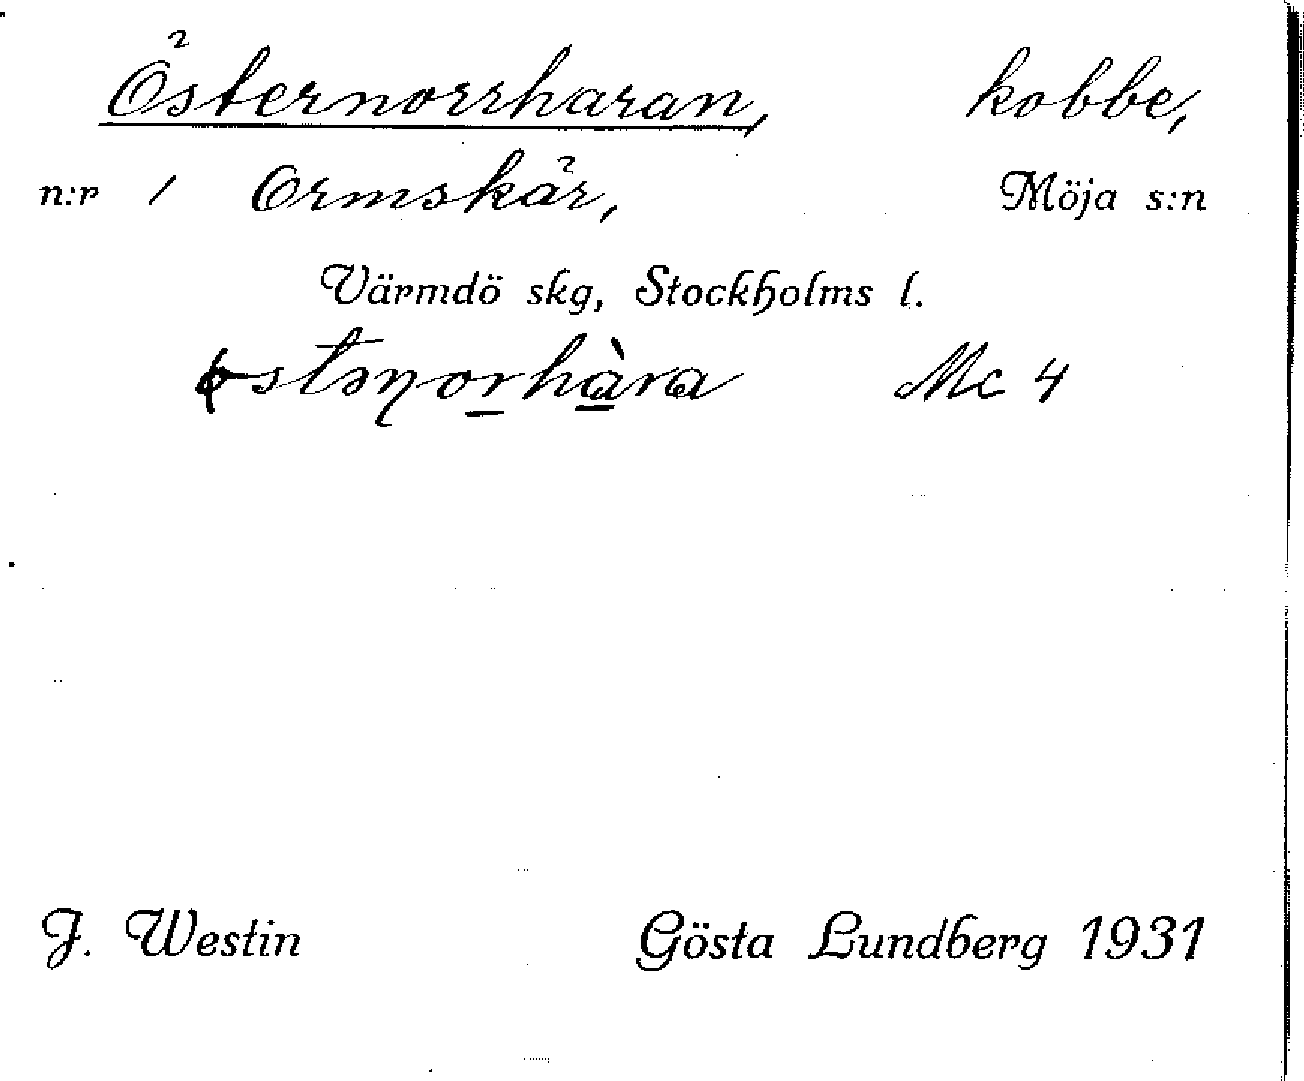 Östernorrharan, kobbe,
n:r 1 Ormskär, Möja s:n
Värmdö skg, Stockholms l.
Mc 4
J. Westin Gösta Lundberg 1931